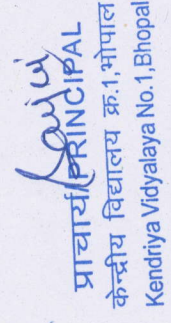 प्राचार्य/PRINCIPAL
केन्द्रीय विद्यालय क्र.1,भोपाल
Kendriya Vidyalaya No.1,Bhopal